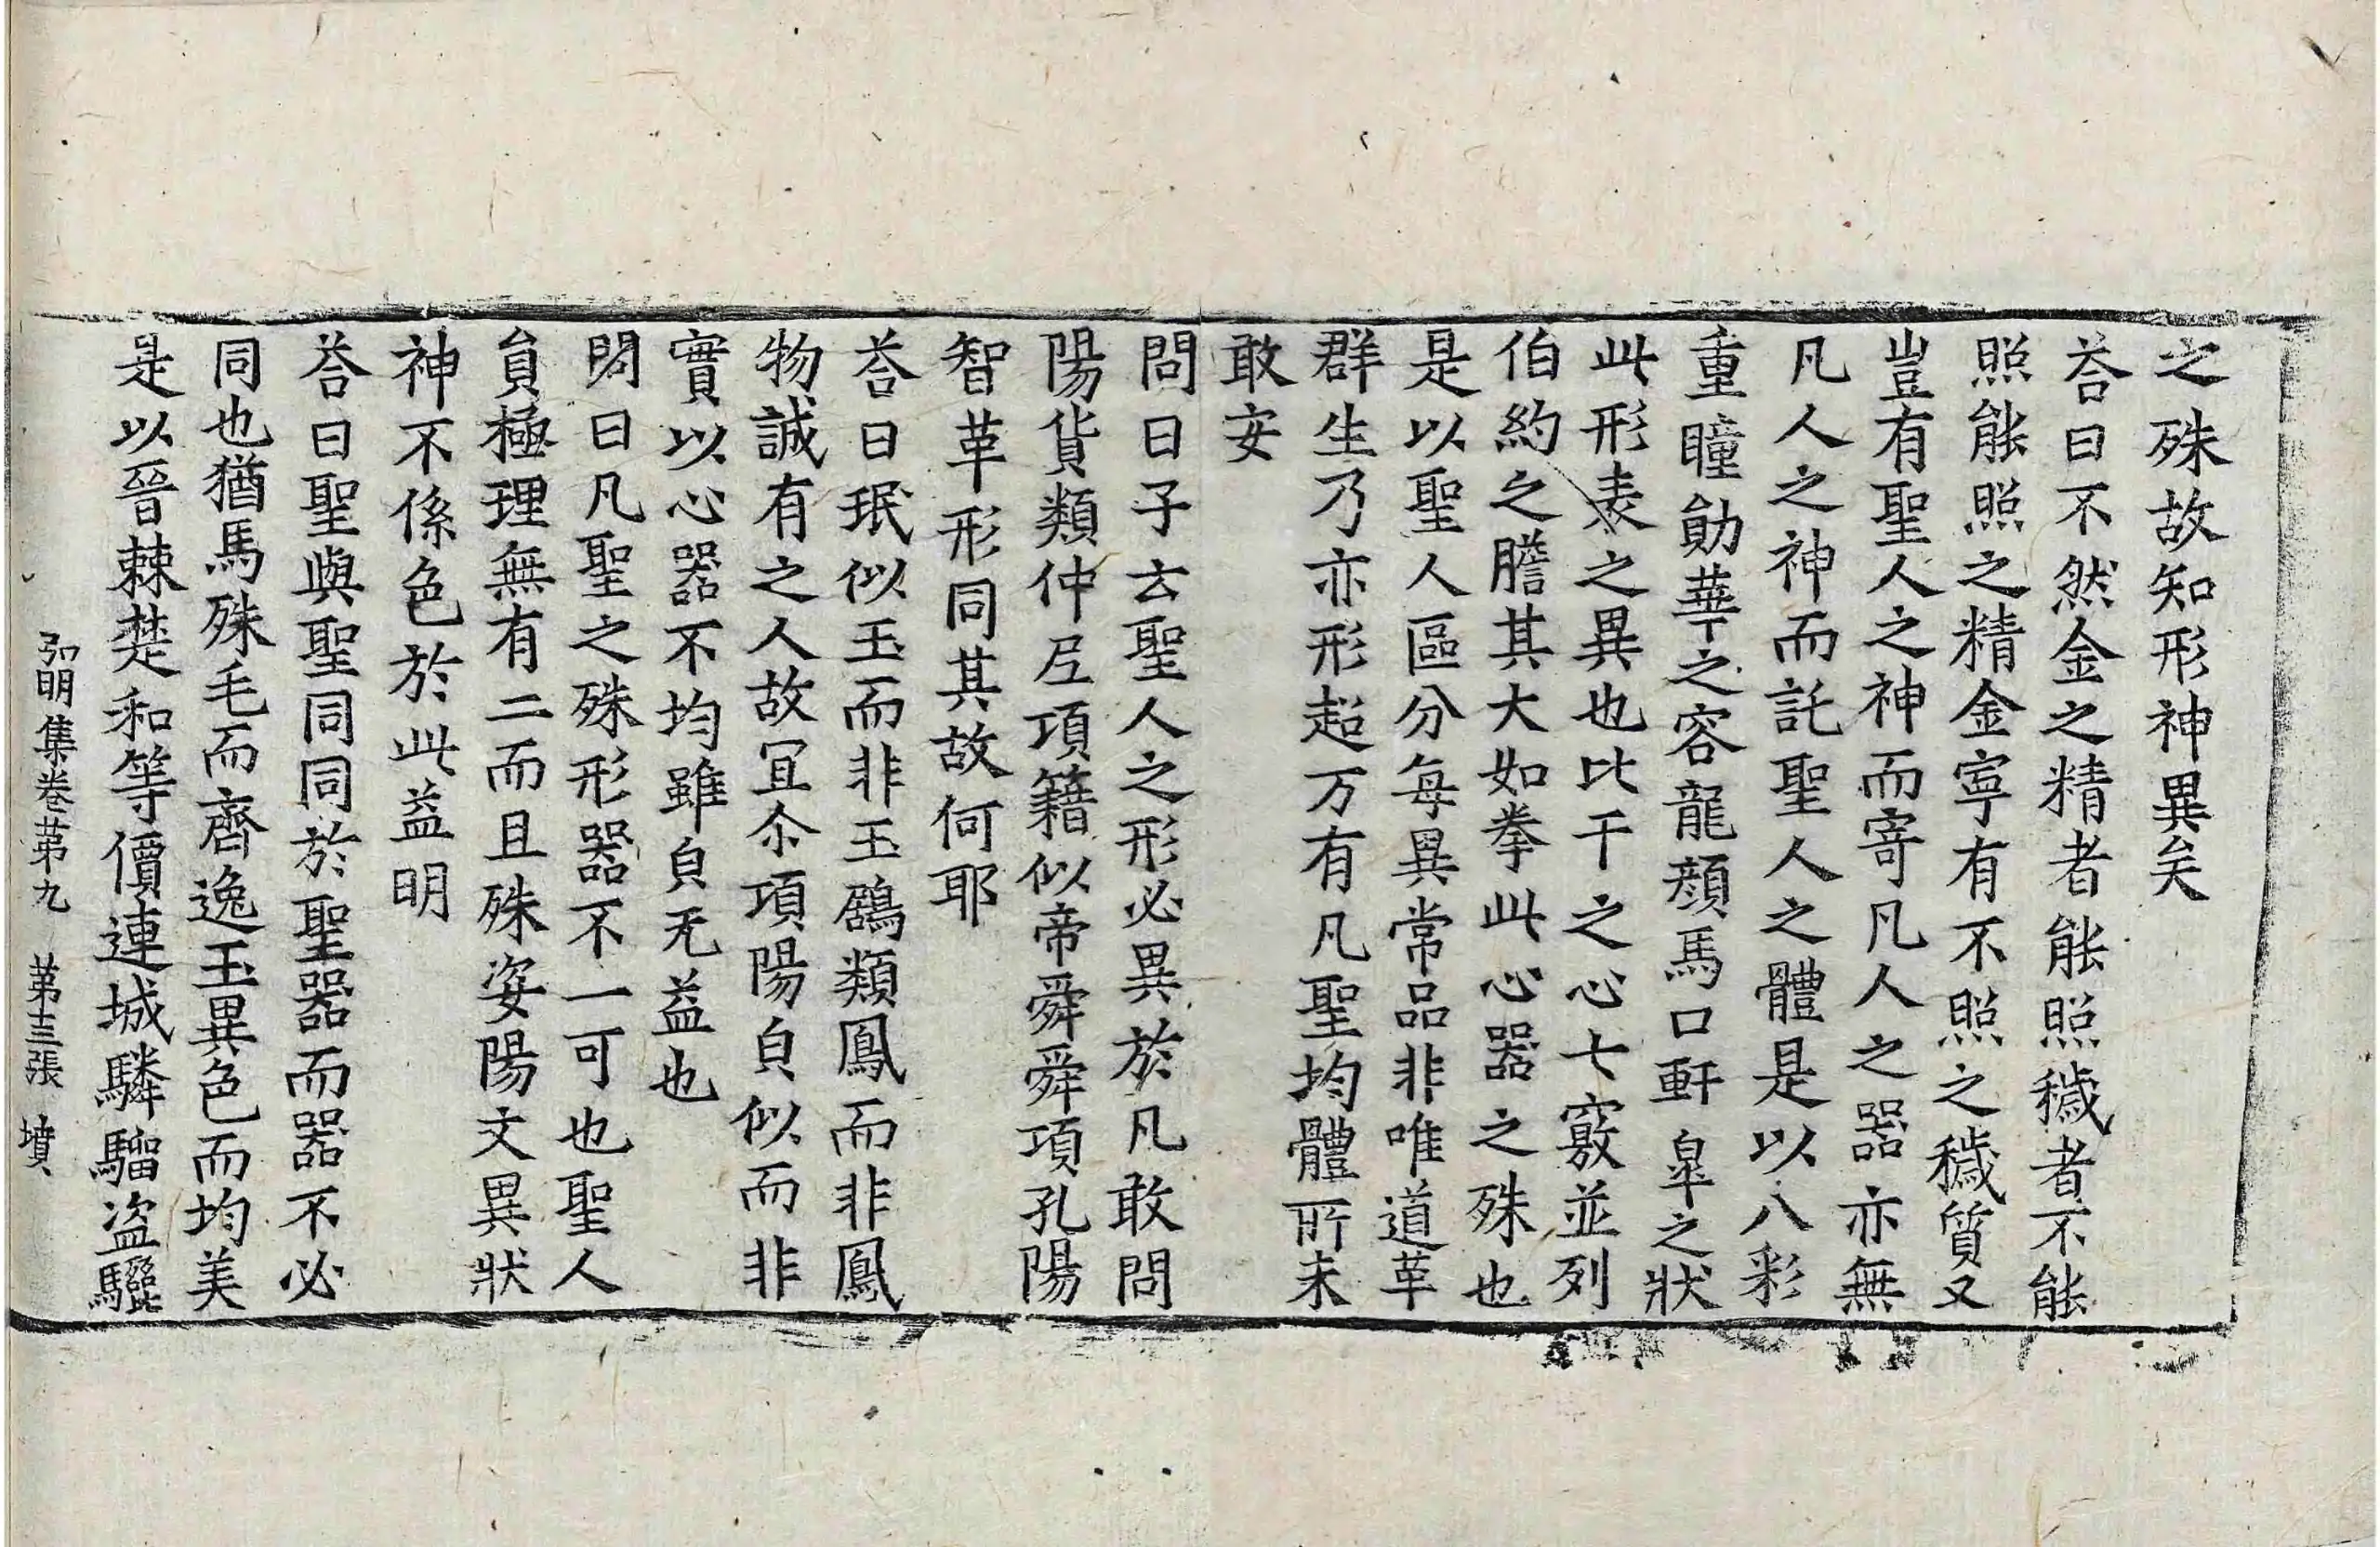 之殊故知形神異矣
荅曰不然金之精者能照穢者不能
照能照之精金寧有不照之穢質又
豈有聖人之神而寄凡人之器亦無
凡人之神而託聖人之體是以八彩
重瞳勛華之容龍顔馬口軒皐之狀
此形表之異也比干之心七竅並列
伯約之膽其大如拳此心器之殊也
是以聖人區分每異常品非唯道革
群生乃亦形超万有凡聖均體所未
敢安
問曰子云聖人之形必異於凡敢問
陽貨類仲尼項籍似帝舜舜項孔陽
智革形同其故何耶
荅曰珉似玉而非玉鷂類鳳而非鳳
物誠有之人故冝尒項陽皃似而非
實以心器不均雖皃无益也
問曰凡聖之殊形器不一可也聖人
貟極理無有二而且殊姿陽文異狀
神不係色於此益明
荅曰聖與聖同同於聖器而器不必
同也猶馬殊毛而齊逸玉異色而均美
是以晉棘楚和等價連城驎騮盗驪
弘明集卷苐九 苐十三張 墳